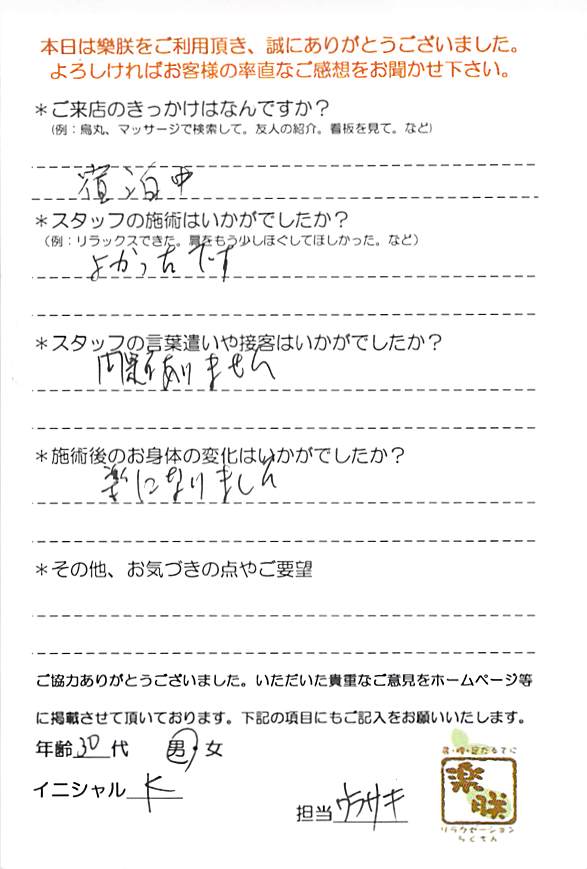 本日は樂朕をご利用頂き、誠にありがとうございました。
よろしければお客様の率直なご感想をお聞かせ下さい。
＊ご来店のきっかけはなんですか？
(例：烏丸、マッサージで検索して。友人の紹介。看板を見て。など)
宿泊中
＊スタッフの施術はいかがでしたか？
(例：リラックスできた。肩をもう少しほぐしてほしかった。など)
よかったです
＊スタッフの言葉遣いや接客はいかがでしたか？
問題ありません
＊施術後のお身体の変化はいかがでしたか？
楽になりました
＊その他、お気づきの点やご要望
ご協力ありがとうございました。いただいた貴重なご意見をホームページ等
に掲載させて頂いております。下記の項目にもご記入をお願いいたします。
年齢 30 代 男・女
イニシャル K
担当 ウラサキ
楽朕
リラクゼーション
らくちん